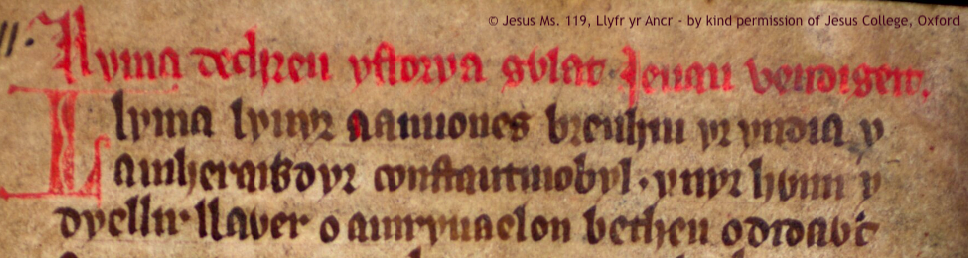 © Jesus Ms. 119, Llyfr yr Ancr - by kind permission of Jesus College, Oxford
Llyma dechreu ystorya gỽlat Jeuan vendigeit.
Llyma lyuyr aanuones brenhin yr yndia y
amheraỽdyr constantinobyl. ynyr hỽnn y
dyellir llaỽer o amryuaelon betheu odidaỽc